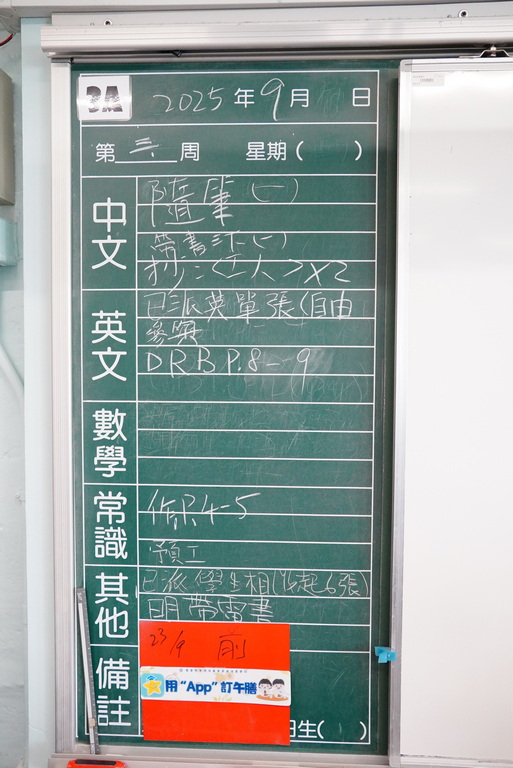 3A
2025年9月 日
第三周 星期( )
中文
隨筆(一)
帶書三下(一)
抄:<工人>X2
英文
已派英單張(自由
參與
DRB P.8-9
數學
常識
作P.4-5
預工
其他
已派學生相(收起6張)
明帶雷書
備註
23/9 前
用"App"訂午膳
日生( )